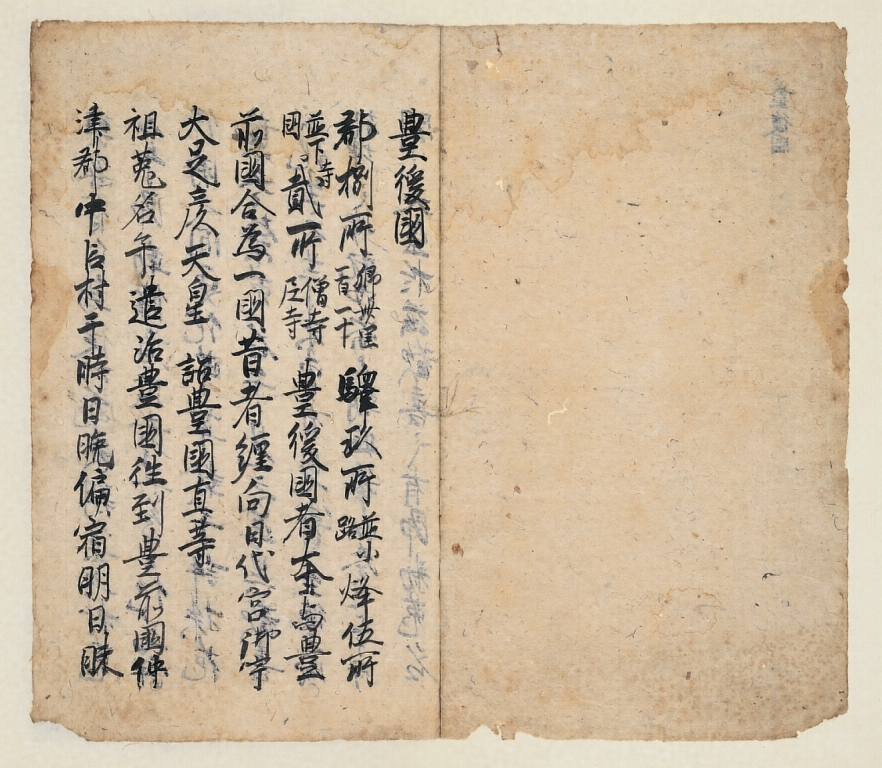 豐後國
郡捌所郷卌里一百一十驛玖所並小路烽伍所
並下寺國貳所僧寺尼寺豐後國者夲与豐
前國合為一國昔者纏向日代宮御宇
大足彦天皇 詔豐國直等
祖菟名手遣治豐國往到豐前國仲
津郡中臣村于時日晩僑宿明日昧